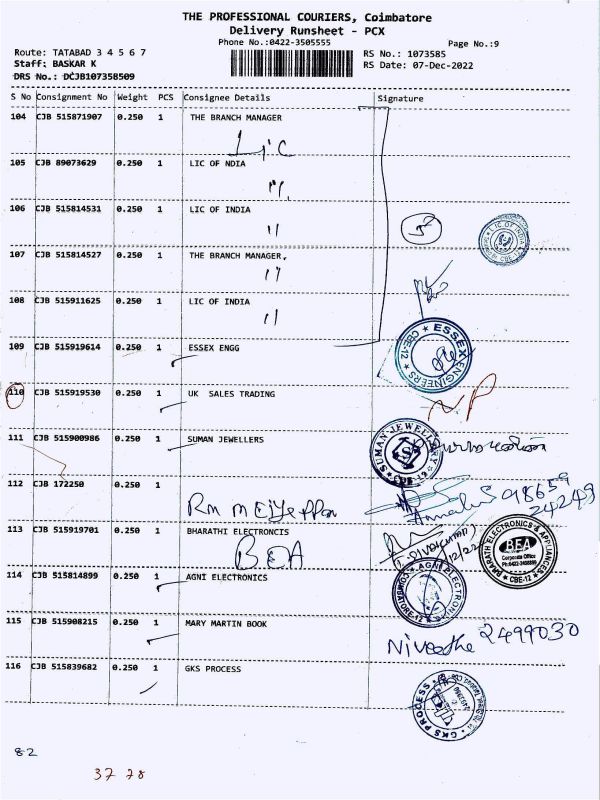 THE PROFESSIONAL COURIERS, Coimbatore
Delivery Runsheet - PCX
Phone No.:0422-3505555
Page No.:9
Route: TATABAD 3 4 5 6 7
RS No.: 1073585
Staff: BASKAR K
RS Date: 07-Dec-2022
DRS No.: DCJB107358509
S No Consignment No Weight PCS Consignee Details Signature
104 CJB 515871907 0.250 1 THE BRANCH MANAGER
LIC
105 CJB 89073629 0.250 1 LIC OF NDIA
106 CJB 515814531 0.250 1 LIC OF INDIA
LIC OF INDIA
107 CJB 515814527 0.250 1 THE BRANCH MANAGER,
108 CJB 515911625 0.250 1 LIC OF INDIA
109 CJB 515919614 0.250 1 ESSEX ENGG
ESSEX ENGINEERS CBE-12
110 CJB 515919530 0.250 1 UK SALES TRADING
NP
111 CJB 515900986 0.250 1 SUMAN JEWELLERS
SUMAN JEWELLERY
112 CJB 172250 0.250 1
Rm MEiyeppan
98659
24249
113 CJB 515919701 0.250 1 BHARATHI ELECTRONCIS
BEA
BHARATH ELECTRONICS & APPLIANCES
BEA
Corporate Office
CBE-12
114 CJB 515814899 0.250 1 AGNI ELECTRONICS
AGNI ELECTRONICS
115 CJB 515908215 0.250 1 MARY MARTIN BOOK
Nivedha 2499030
116 CJB 515839682 0.250 1 GKS PROCESS
GKS PROCESS
82
37 78